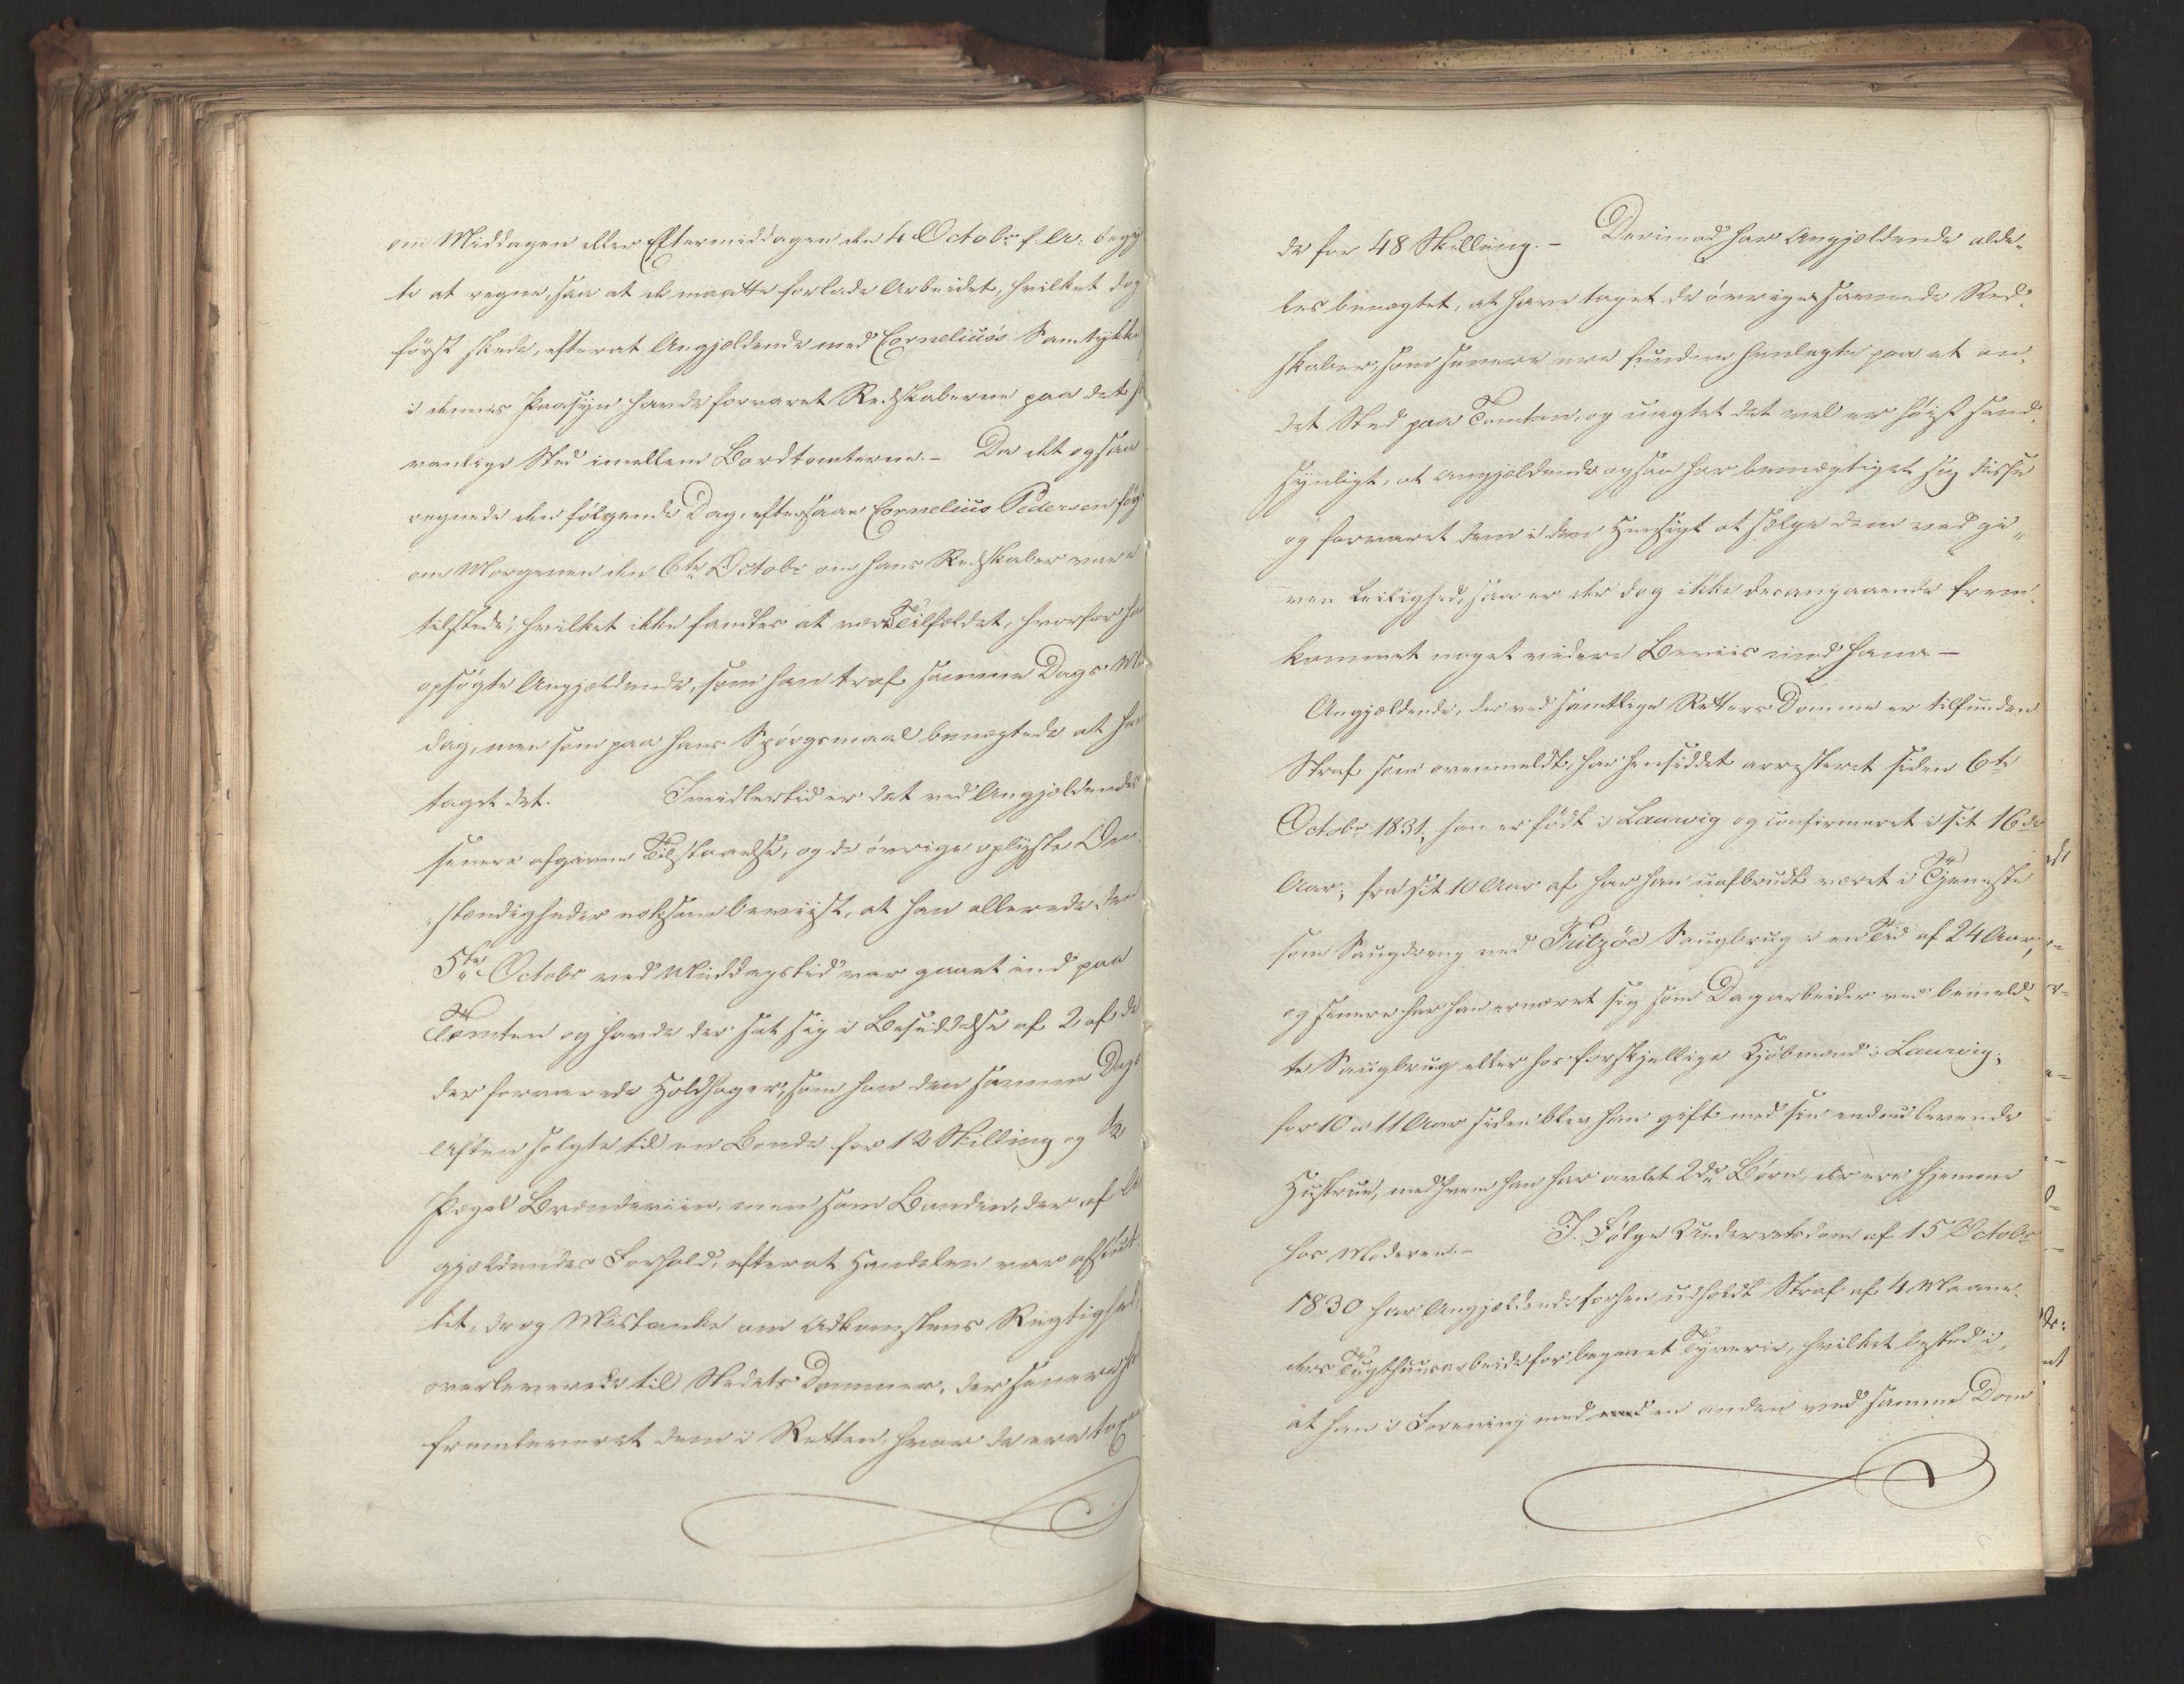 om Middagen eller Eftermiddagen den 4 Octobr f: A: begynd
te at regne, saa at de maatte forlade Arbeidet, hvilket dog
først skede, efterat Angjældende med Cornelius's Samtykke
i dennes Paasyn havde forvaret Redskaberne paa det
vanlige Sted imellem Bordtomterne. – Da det ogsaa
regnede den følgende Dag, eftersaae Cornelius Pedersen først
om Morgenen den 6te Octobr om hans Redskaber vare
tilstede, hvilket ikke fandtes at være Tilfældet, hvorfor han
opsøgte Angjældende, som han traf samme Dags Mid
dag, men som paa hans Spørgsmaal benægtede at have
taget det. Imidlertid er det ved Angjældendes
senere afgivne Tilstaaelse, og de øvrige oplyste Om,
stændigheder noksom beviist, at han allerede den
5te Octobr ved Middagstid var gaaet ind paa
Tomten og havde der sat sig i Besiddelse af 2 af de
der forvarede Holdhager, som han den samme Dags
Aften solgte til en Bonde for 12 Skilling og 1/2
Pægel Brændeviin, men som Bonden, der af An
gjældendes Forhold, efterat Handelen var afslut
tet, drog Mistanke om Adkomstens Rigtighed,
overleverede til Stedets Dommer, der senere har
fremleveret dem i Retten, hvor de ere taxere
de for 48 Skilling. – Derimod har Angjældende alde,
les benægtet, at have taget de øvrige savnede Red,
skaber, som senere ere fundne henlagte paa et an,
det Sted paa Tomten, og uagtet det vel er høist sand,
synligt, at Angjældende ogsaa har bemægtiget sig disse
og forvaret dem i den Hensigt at sælge dem ved gi„
ven Leilighed, saa er der dog ikke desangaaende frem,
kommet noget videre Beviis mod ham –
Angjældende, der ved samtlige Retters Domme er tilfunden
Straf som ovenmeldt, har hensiddet arresteret siden 6te
Octobr 1831, han er født i Laurvig og confirmeret i sit 16de
Aar; fra sit 10 Aar af har han uafbrudt været i Tjeneste
som Saugdreng ved Fritzöe Saugbrug i en Tid af 24 Aar,
og senere har han ernæret sig som Dagarbeider ved bemeld,
te Saugbrug eller hos forskjellige Kjøbmænd i Laurvig;
for 10 a 11 Aar siden blev han gift med sin endnu levende
Hustrue, med hvem han har avlet 2de Børn, der ere hjemme
hos Moderen. – I Følge Underretsdom af 15 Octobr
1830 har Angjældende forhen udholdt Straf af 4 Maane,
ders Tugthuusarbeide for begaaet Tyverie, hvilket bestod i,
at han i Forening med en anden ved samme Dom